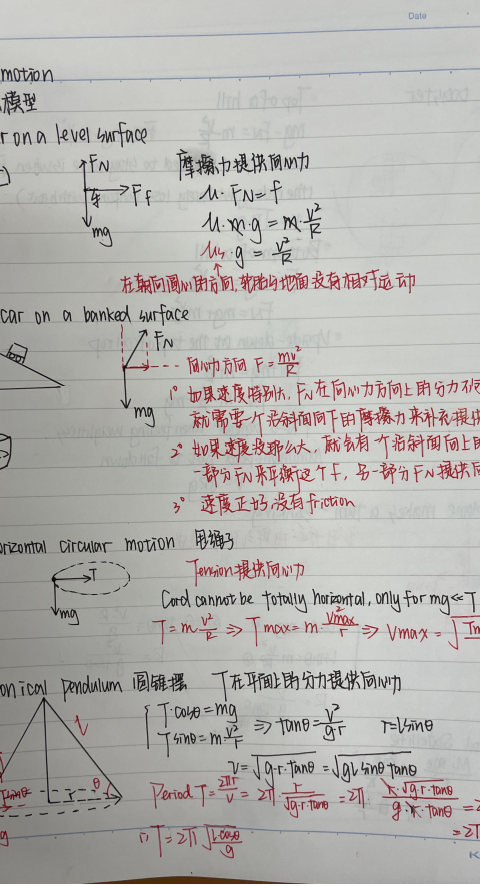 Date
motion
模型
r on a level surface
FN
Ff
mg
摩擦力提供向心力
μ·FN=f
μ·m·g=m·v²/R
μs·g=v²/R
在朝向圆心的方向,轮胎与地面没有相对运动
car on a banked surface
FN
mg
向心力方向 F=mv²/R
1° 如果速度特别大, FN在向心力方向上的分力不
就需要一个沿斜面向下的摩擦力来补充提供
2° 如果速度没那么大, 就会有一个沿斜面向上的
一部分FN来平衡这个f, 另一部分FN提供向
3° 速度正好,没有friction
orizontal circular motion 甩绳子
T
mg
Tension提供向心力
Cord cannot be totally horizontal, only for mg≪T
T=m·v²/R ⇒ Tmax=m·v²max/r ⇒ Vmax=√Tm
onical pendulum 圆锥摆 T在平面上的分力提供向心力
l
θ
T·cosθ=mg
Tsinθ=m·v²/r
⇒ tanθ=v²/g·r r=lsinθ
v=√g·r·tanθ=√gl sinθ tanθ
Period T=2πr/v=2π r/√g·r·tanθ=2π r·√g·r·tanθ/g·r·tanθ=2
=2π
T=2π√l·cosθ/g